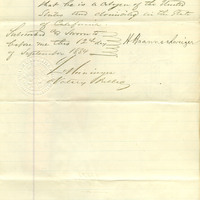 that he is a citizen of the United
States and residing in the State
of California
Subscribed & Sworn to
before me this 12th day
of September 1884
Notary Public